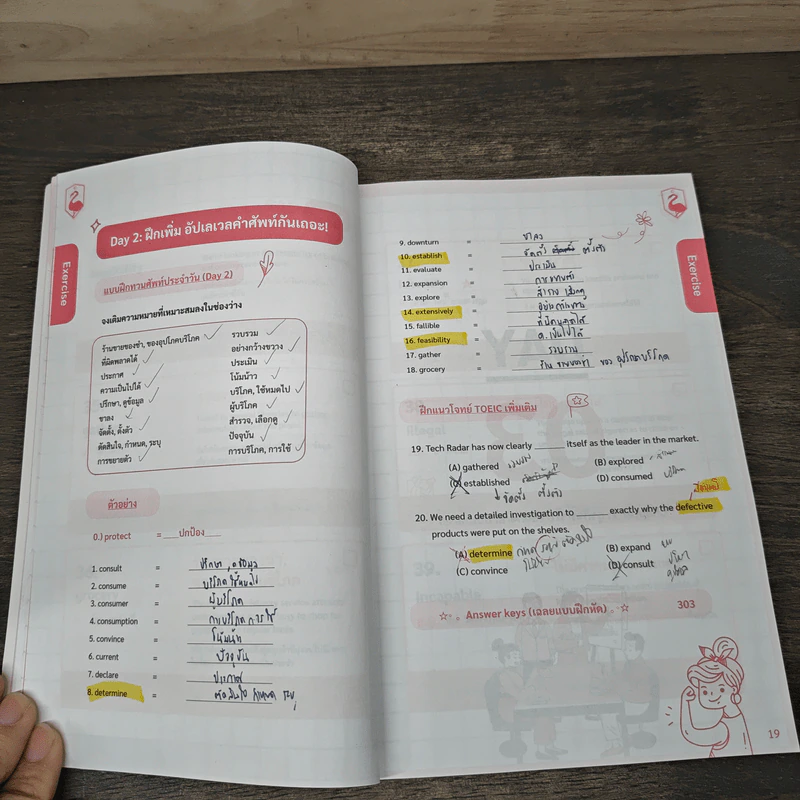 Exercise
Day 2: ฝึกเพิ่ม อัปเลเวลคำศัพท์กันเถอะ!
แบบฝึกทวนศัพท์ประจำวัน (Day 2)
จงเติมความหมายที่เหมาะสมลงในช่องว่าง
ร้านขายของชำ, ของอุปโภคบริโภค
ที่ผิดพลาดได้
ประกาศ
ความเป็นไปได้
ปรึกษา, ดูข้อมูล
ขาลง
จัดตั้ง, ตั้งตัว
ตัดสินใจ, กำหนด, ระบุ
การขยายตัว
รวบรวม
อย่างกว้างขวาง
ประเมิน
โน้มน้าว
บริโภค, ใช้หมดไป
ผู้บริโภค
สำรวจ, เลือกดู
ปัจจุบัน
การบริโภค, การใช้
ตัวอย่าง
0.) protect = ปกป้อง
1. consult = ปรึกษา, ดูข้อมูล
2. consume = บริโภค ใช้หมดไป
3. consumer = ผู้บริโภค
4. consumption = การบริโภค การใช้
5. convince = โน้มน้าว
6. current = ปัจจุบัน
7. declare = ประกาศ
8. determine = ตัดสินใจ กำหนด ระบุ
Exercise
9. downturn = ขาลง
10. establish = จัดตั้ง ตั้งตัว
11. evaluate = ประเมิน
12. expansion = การขยายตัว
13. explore = สำรวจ เลือกดู
14. extensively = อย่างกว้างขวาง
15. fallible = ที่ผิดพลาดได้
16. feasibility = ค. เป็นไปได้
17. gather = รวบรวม
18. grocery = ร้านขายของชำ ของอุปโภคบริโภค
ฝึกแนวโจทย์ TOEIC เพิ่มเติม
19. Tech Radar has now clearly ______ itself as the leader in the market.
(A) gathered รวบรวม (B) explored
(C) established (D) consumed บริโภค
จัดตั้ง ตั้งตัว
20. We need a detailed investigation to ______ exactly why the defective
products were put on the shelves.
(A) determine (B) expand
(C) convince (D) consult
Answer keys (เฉลยแบบฝึกหัด) 303
19